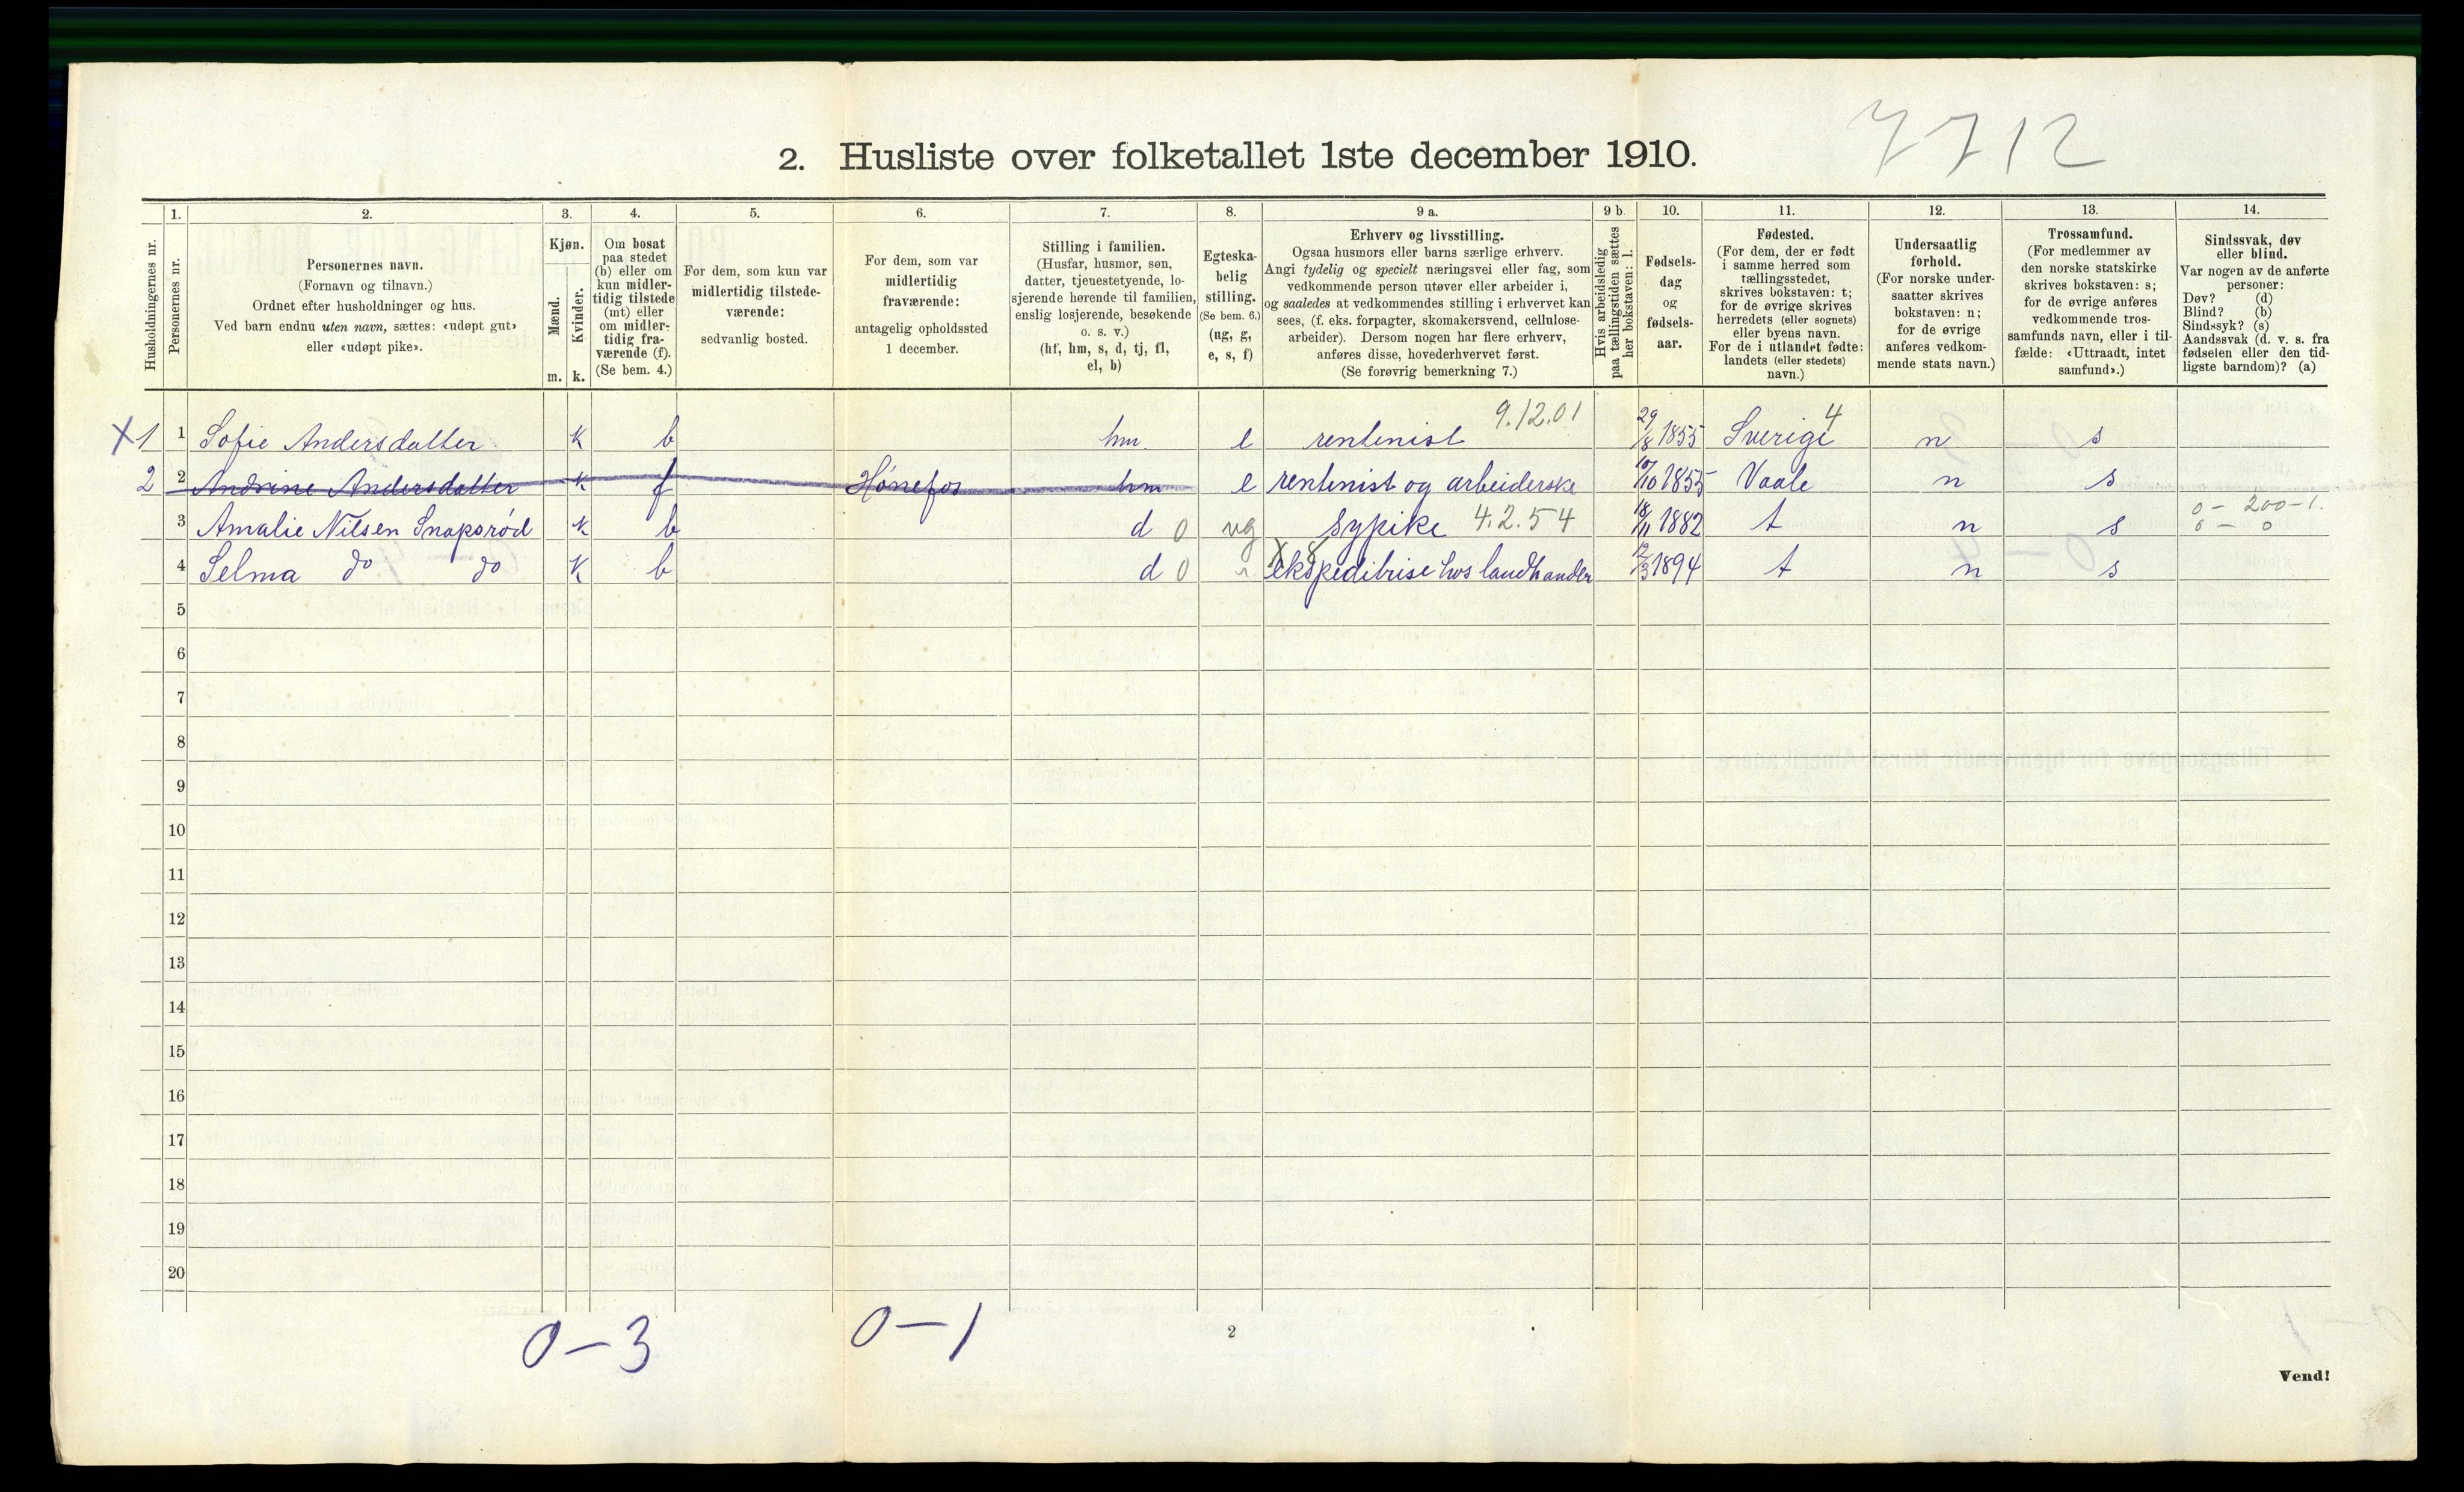 7712
2. Husliste over folketallet 1ste december 1910.
Husholdningernes nr.
1. Personernes nr.
2. Personernes navn. (Fornavn og tilnavn.) Ordnet efter husholdninger og hus. Ved barn endnu uten navn, sættes: «udøpt gut» eller «udøpt pike».
3. Kjøn. Mænd. m. Kvinder. k.
4. Om bosat paa stedet (b) eller om kun midler-tidig tilstede (mt) eller om midler-tidig fra-værende (f). (Se bem. 4.)
5. For dem, som kun var midlertidig tilstede-værende: sedvanlig bosted.
6. For dem, som var midlertidig fraværende: antagelig opholdssted 1 december.
7. Stilling i familien. (Husfar, husmor, søn, datter, tjenestetyende, lo-sjerende hørende til familien, enslig losjerende, besøkende o. s. v.) (hf, hm, s, d, tj, fl, el, b)
8. Egteska-belig stilling. (Se bem. 6.) (ug, g, e, s, f)
9 a. Erhverv og livsstilling. Ogsaa husmors eller barns særlige erhverv. Angi tydelig og specielt næringsvei eller fag, som vedkommende person utøver eller arbeider i, og saaledes at vedkommendes stilling i erhvervet kan sees, (f. eks. forpagter, skomakersvend, cellulose-arbeider). Dersom nogen har flere erhverv, anføres disse, hovederhvervet først. (Se forøvrig bemerkning 7.)
9 b. Hvis arbeidsledig paa tællingstiden sættes her bokstaven: l.
10. Fødsels-dag og fødsels-aar.
11. Fødested. (For dem, der er født i samme herred som tællingsstedet, skrives bokstaven: t; for de øvrige skrives herredets (eller sognets) eller byens navn. For de i utlandet fødte: landets (eller stedets) navn.)
12. Undersaatlig forhold. (For norske under-saatter skrives bokstaven: n; for de øvrige anføres vedkom-mende stats navn.)
13. Trossamfund. (For medlemmer av den norske statskirke skrives bokstaven: s; for de øvrige anføres vedkommende tros-samfunds navn, eller i til-fælde: «Uttraadt, intet samfund».)
14. Sindssvak, døv eller blind. Var nogen av de anførte personer: Døv? (d) Blind? (b) Sindssyk? (s) Aandssvak (d. v. s. fra fødselen eller den tid-ligste barndom)? (a)
X 1 1 Sofie Andersdatter k b hm e rentenist 9.12.01 29/8 1855 Sverige 4 n s
2 2 Andrine Andersdatter k f Hønefos hm e rentenist og arbeiderske 10/10 1855 Vaale n s
3 Amalie Nilsen Snapsrød k b d 0 ug sypike 4.2.54 18/11 1882 t n s 0 - 200-1. 0 - 0
4 Selma do do k b d 0 X 8 ekspeditrise hos landhandler 12/3 1894 t n s
5
6
7
8
9
10
11
12
13
14
15
16
17
18
19
20
0-3 0-1
2
Vend!